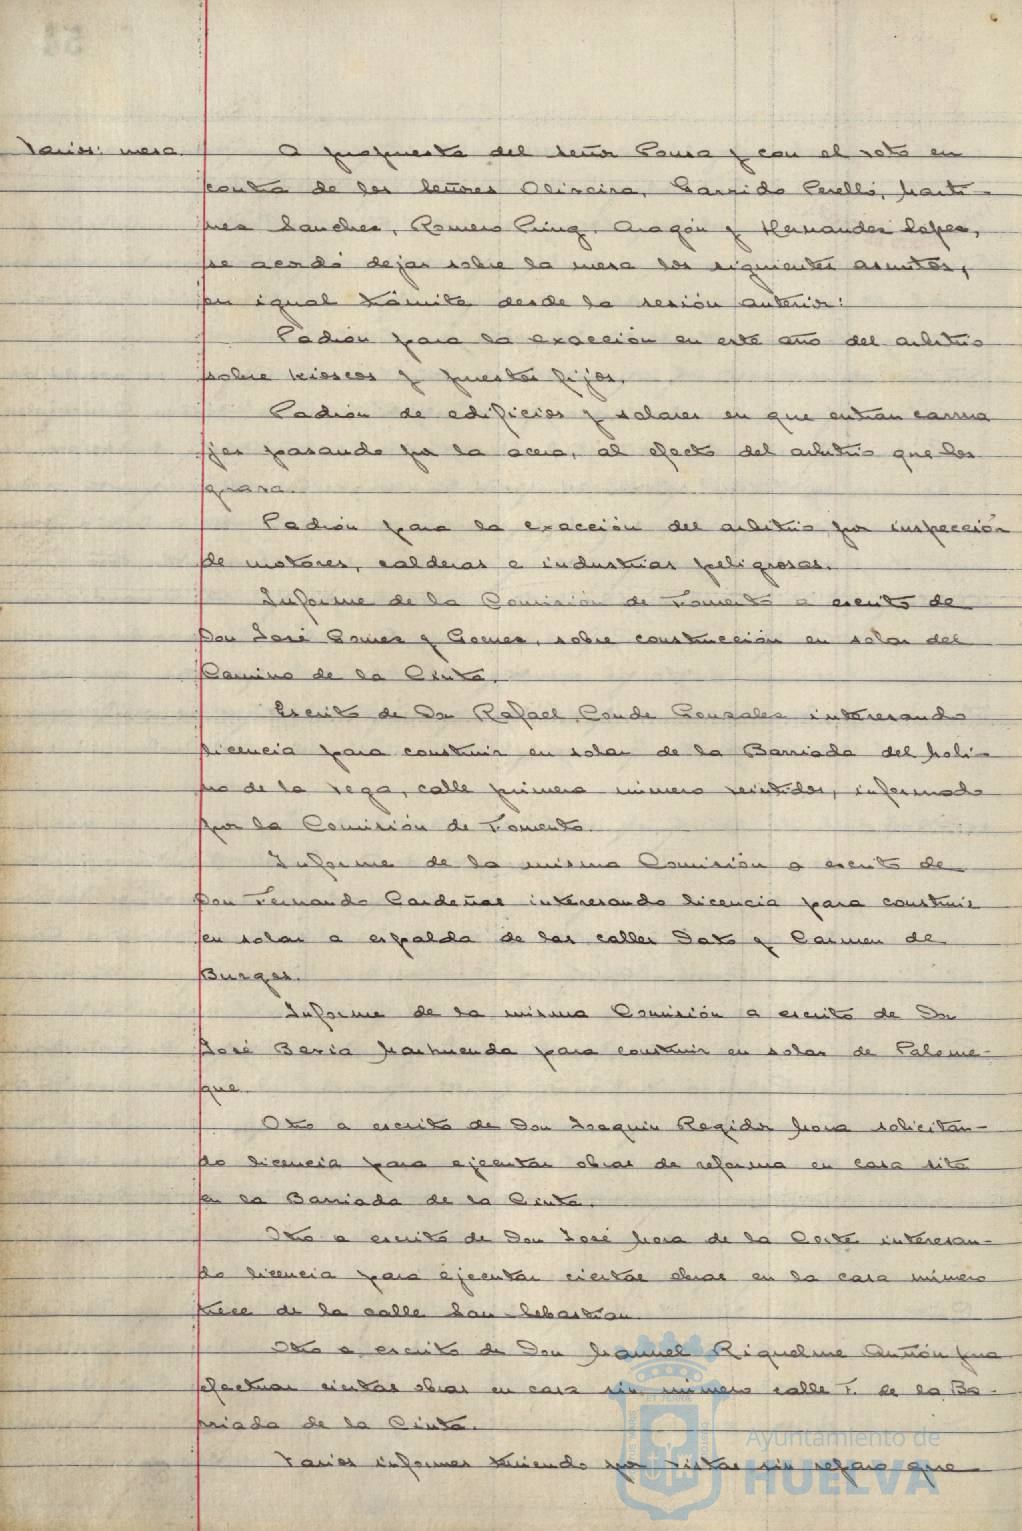 Varios: mesa.
A propuesta del señor Ponce y con el voto en
contra de los señores Oliveira, Garrido Perelló, Martí-
nez Sanchez, Romero Puig, Aragón y Hernandez Lopez,
se acordó dejar sobre la mesa los siguientes asuntos,
en igual trámite desde la sesión anterior:
Padrón para la exacción en este año del arbitrio
sobre kioscos y puestos fijos.
Padrón de edificios y solares en que entran carrua
jes pasando por la acera, al efecto del arbitrio que los
grava.
Padrón para la exacción del arbitrio por inspección
de motores, calderas e industrias peligrosas.
Informe de la Comisión de Fomento a escrito de
Don José Gomez y Gomez, sobre construcción en solar del
Camino de la Cinta.
Escrito de Don Rafael Conde Gonzalez interesando
licencia para construir en solar de la Barriada del Moli-
no de la Vega, calle primera número veintidos, informado
por la Comisión de Fomento.
Informe de la misma Comisión a escrito de
Don Fernando Cardeñas interesando licencia para construir
en solar a espalda de las calles Dato y Carmen de
Burgos.
Informe de la misma Comisión a escrito de Don
José Bexia Marhuenda para construir en solar de Palome-
que.
Otro a escrito de Don Joaquin Regidor Mora solicitan-
do licencia para ejecutar obras de reforma en casa sita
en la Barriada de la Cinta.
Otro a escrito de Don José Mora de la Corte interesan-
do licencia para ejecutar ciertas obras en la casa número
trece de la calle San Sebastián.
Otro a escrito de Don Manuel Riquelme Antión para
efectuar ciertas obras en casa sin número calle F. de la Ba-
rriada de la Cinta.
Varios informes teniendo por vistas sin reparo que
Ayuntamiento de
HUELVA